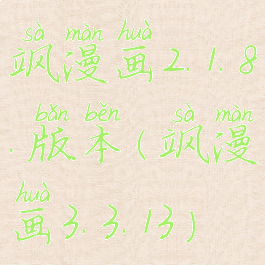 sà màn huà
飒漫画2.1.8
bǎn běn sà màn
.版本(飒漫
huà
画3.3.13)